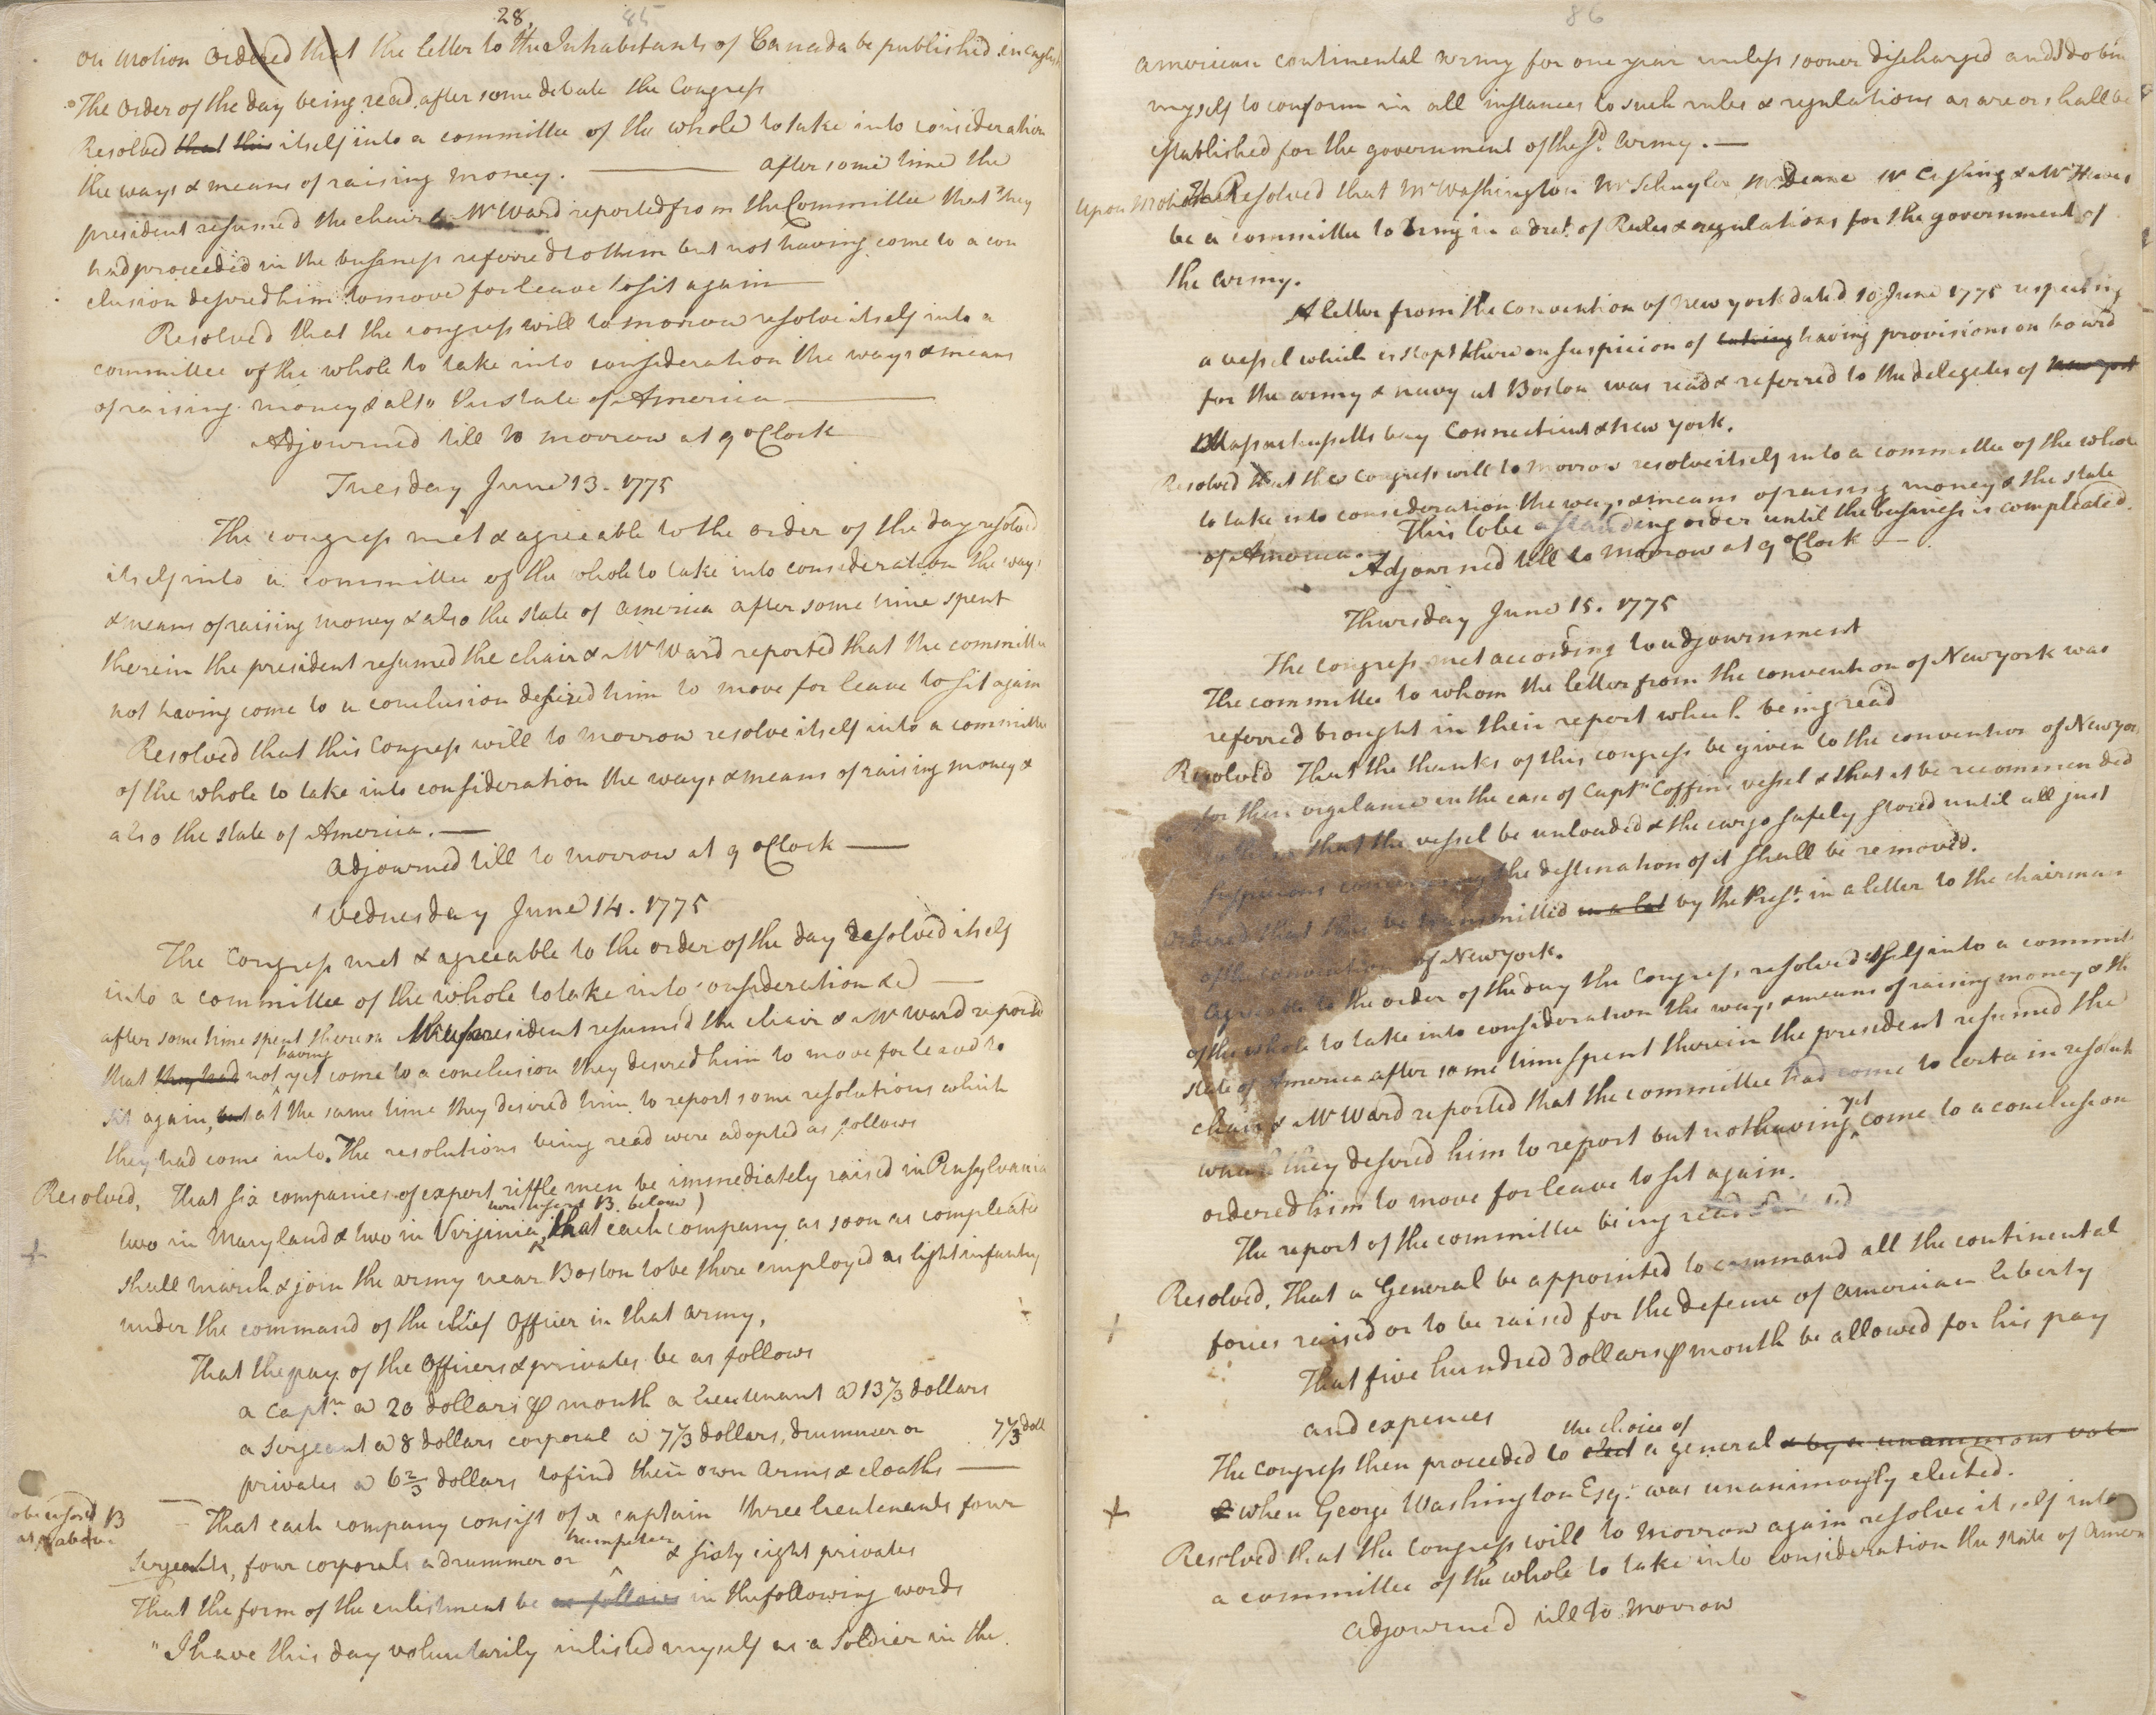 28. 85
On motion Ordered that the letter to the Inhabitants of Canada be published in english
The order of the day being read, after some debate the Congress
Resolved that this itself into a committee of the whole to take into consideration
the ways & means of raising money. — after some time the
president resumed the chair & Mr Ward reported from the Committee that they
had proceeded in the business referred to them but not having come to a con
clusion desired him to move for leave to sit again —
Resolved that the congress will to morrow resolve itself into a
committee of the whole to take into consideration the ways & means
of raising money & also the state of America —
Adjourned till to morrow at 9 oClock
Tuesday June 13. 1775
The congress met & agreeable to the order of the day resolved
itself into a committee of the whole to take into consideration the ways
& means of raising money & also the state of america after some time spent
therein the president resumed the chair & Mr Ward reported that the committee
not having come to a conclusion desired him to move for leave to sit again
Resolved that this Congress will to morrow resolve itself into a committee
of the whole to take into consideration the ways & means of raising money &
also the state of America. —
adjourned till to morrow at 9 oClock —
Wednesday June 14. 1775
The Congress met & agreeable to the order of the day resolved itself
into a committee of the whole to take into consideration &c —
after some time spent thereon the president resumed the chair & Mr Ward reported
having
that they had not yet come to a conclusion they desired him to move for leave to
sit again, but at the same time they desired him to report some resolutions which
they had come into. The resolutions being read were adopted as follows
Resolved, That six companies of expert riffle men be immediately raised in Pensylvania
insert B. below)
two in Maryland & two in Virginia, that each company as soon as compleated
shall march & join the army near Boston to be there employed as light infantry
under the command of the chief Officer in that army,
That the pay of the Officers & privates be as follows
a Captn @ 20 dollars ⅌ month a lieutenant @ 13 1/3 dollars
a sergeant @ 8 dollars corporal @ 7 1/3 dollars, drummer or 7 1/3 doll
privates @ 6 2/3 dollars to find their own arms & cloaths —
to be inserted B — That each company consist of a captain three lieutenants four
as above
trumpeter
sergeants, four corporals a drummer or & sixty eight privates
That the form of the enlistment be as follows in the following words
"I have this day voluntarily inlisted myself as a Soldier in the
86
american continental army for one year unless sooner discharged and I do bind
myself to conform in all instances to such rules & regulations as are or shall be
established for the government of the sd. army. —
Upon Motion Resolved that Mr Washington Mr Schuyler Mr Deane Mr Cushing & Mr Hewes
be a committee to bring in a drat. of Rules & regulations for the government of
the army.
A letter from the convention of new york dated 10 June 1775 respecting
a vessel which is stopt there on suspicion of having provisions on board
for the army & navy at Boston was read & referred to the delegates of new york
Massachusetts bay Connecticut & new york.
Resolved that the Congress will to morrow resolve itself into a committee of the whole
to take into consideration the ways & means of raising money & the state
This to be a standing order until the business is compleated.
of America.
Adjourned till to morrow at 9 oClock —
Thursday June 15. 1775
The congress met according to adjournment
The committee to whom the letter from the convention of New york was
referred brought in their report which being read
Resolved That the thanks of this congress be given to the convention of New york
for their vigilance in the case of Captn. Coffins vessel & that it be recommended
to them that the vessel be unloaded & the cargo safely stored until all just
suspicions concerning the destination of it shall be removed.
Ordered that this be transmitted in a let by the Prest. in a letter to the chairman
of the convention of New york.
Agreeable to the order of the day the Congress resolved itself into a committ
of the whole to take into consideration the ways & means of raising money & the
state of America after some time spent therein the president resumed the
chair & Mr Ward reported that the committee had come to certain resolut
yet
which they desired him to report but not having come to a conclusion
ordered him to move for leave to sit again.
The report of the committee being read
Resolved, That a General be appointed to command all the continental
forces raised or to be raised for the defence of american liberty
That five hundred dollars ⅌ month be allowed for his pay
and expences
the choice of
The Congress then proceeded to elect a general & by a unanimous vote
& when George Washington Esqr. was unanimously elected.
Resolved that the Congress will to morrow again resolve itself into
a committee of the whole to take into consideration the state of America
adjourned till to morrow